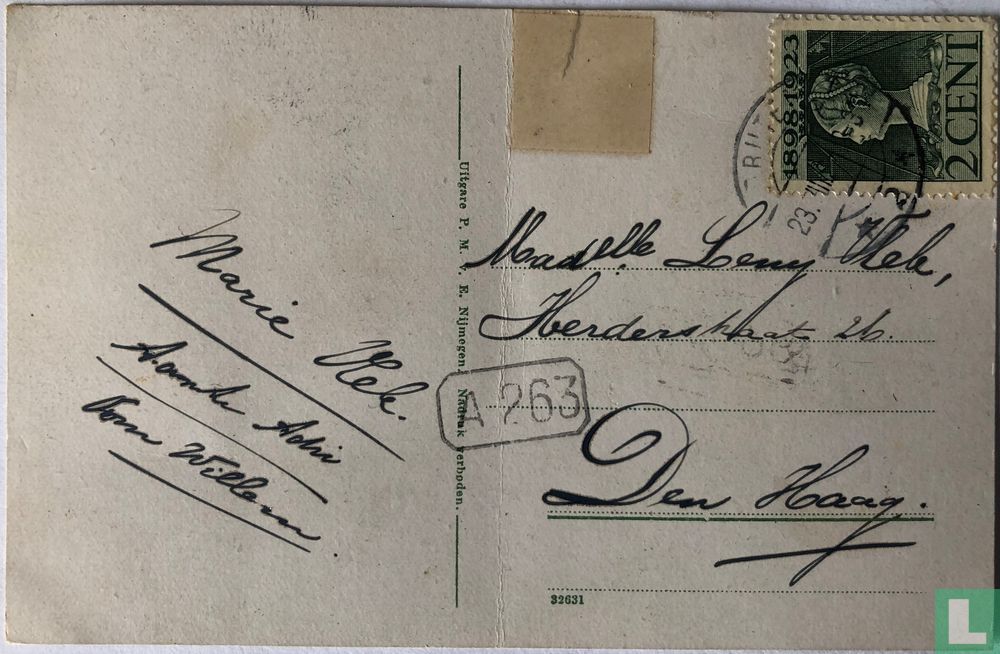 Marie Kek.
Tante Adri
Oom Willem.
Uitgave P. M. V. E. Nijmegen. Nadruk verboden.
1898-1923
2 CENT
23.
Madelle Leny Kek,
Herderstraat 26.
A 263
Den Haag.
32631
L